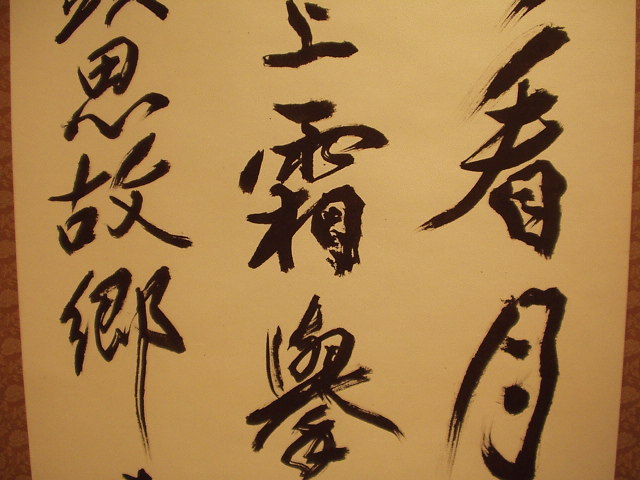 看月
上霜擧
思故鄉